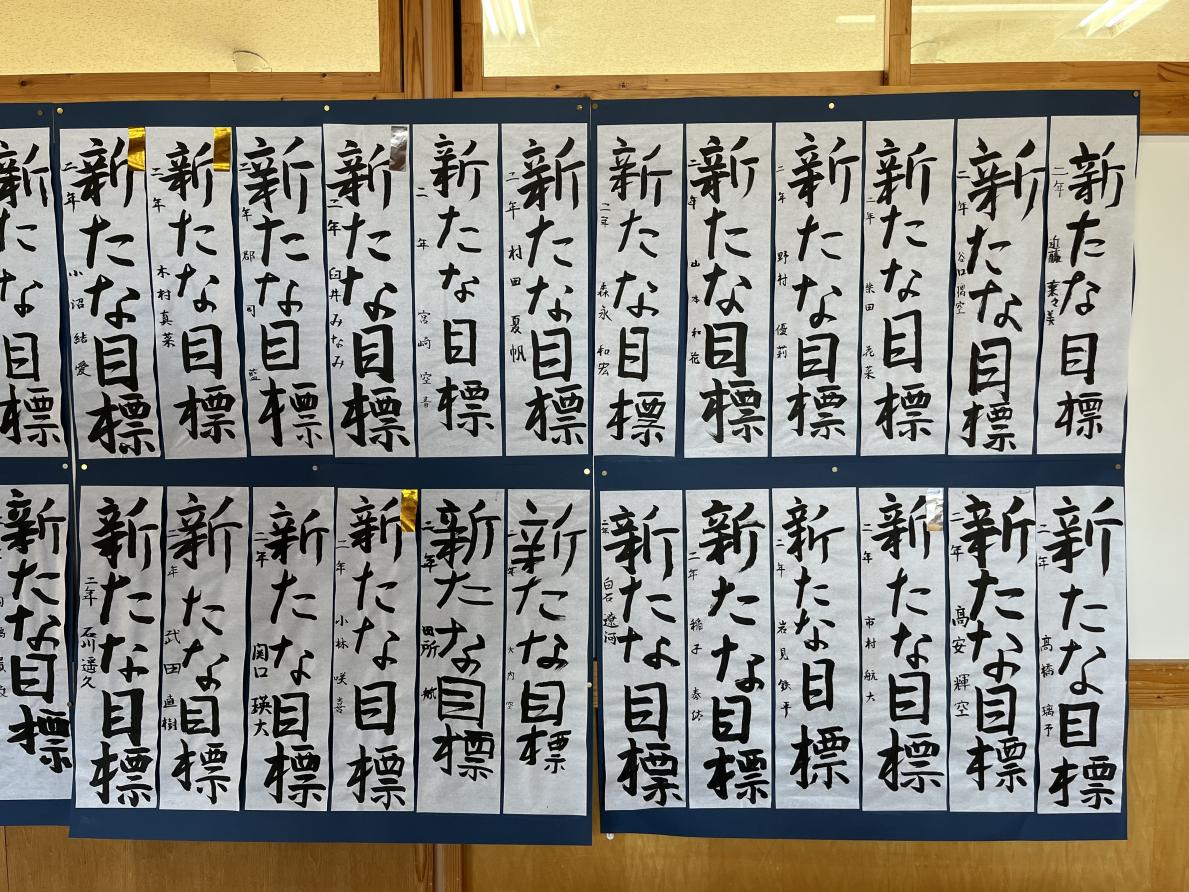 新たな目標
二年 近藤 菜々美
新たな目標
二年 谷口
新たな目標
二年 柴田 花菜
新たな目標
二年 野村 優莉
新たな目標
二年 山本 和花
新たな目標
二年 森永 和宏
新たな目標
二年 村田 夏帆
新たな目標
二年 宮崎 空音
新たな目標
二年 臼井みなみ
新たな目標
二年 郡司 藍
新たな目標
二年 木村真菜
新たな目標
二年 小沼 結愛
新たな目標
新たな目標
二年 高橋 璃予
新たな目標
二年 高安 輝空
新たな目標
二年 市村 航大
新たな目標
二年 岩見 鉄平
新たな目標
二年 稲子
新たな目標
二年 白石 遼河
新たな目標
二年 大内 空
新たな目標
二年 田所
新たな目標
二年 小林 咲喜
新たな目標
二年 関口 瑛大
新たな目標
二年 武田 直樹
新たな目標
二年 石川 遥久
新たな目標